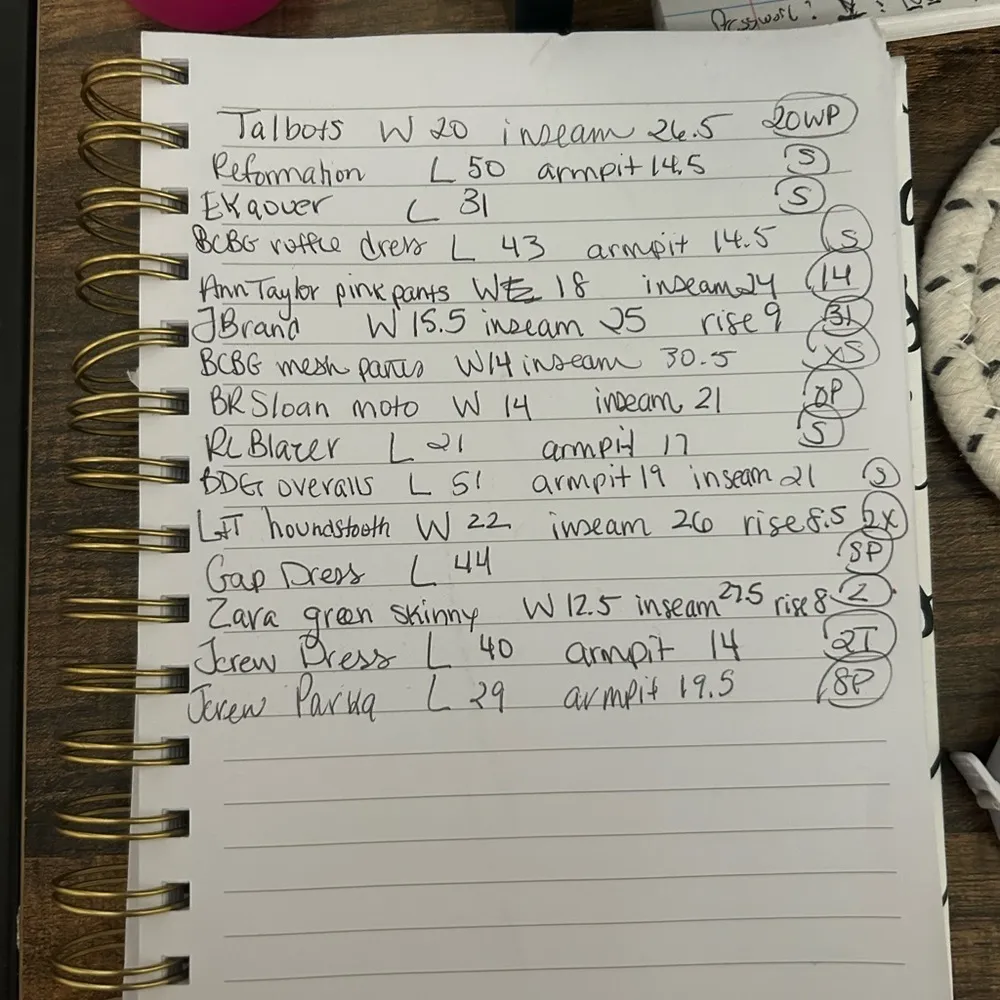 Password?
Talbots W 20 inseam 26.5 20WP
Reformation L 50 armpit 14.5 S
L 31 S
BCBG ruffle dress L 43 armpit 14.5 S
Ann Taylor pink pants W 18 inseam 24 14
JBrand W 15.5 inseam 25 rise 9 31
BCBG mesh pants W14 inseam 30.5 XS
BR Sloan moto W 14 inseam 21 0P
RL Blazer L 21 armpit 17 S
BDG overalls L 51 armpit 19 inseam 21 S
houndstooth W 22 inseam 26 rise 8.5 2X
Gap Dress L 44 SP
Zara green skinny W 12.5 inseam 27.5 rise 8 2
Jcrew Dress L 40 armpit 14 2T
Jcrew Parka L 29 armpit 19.5 8P